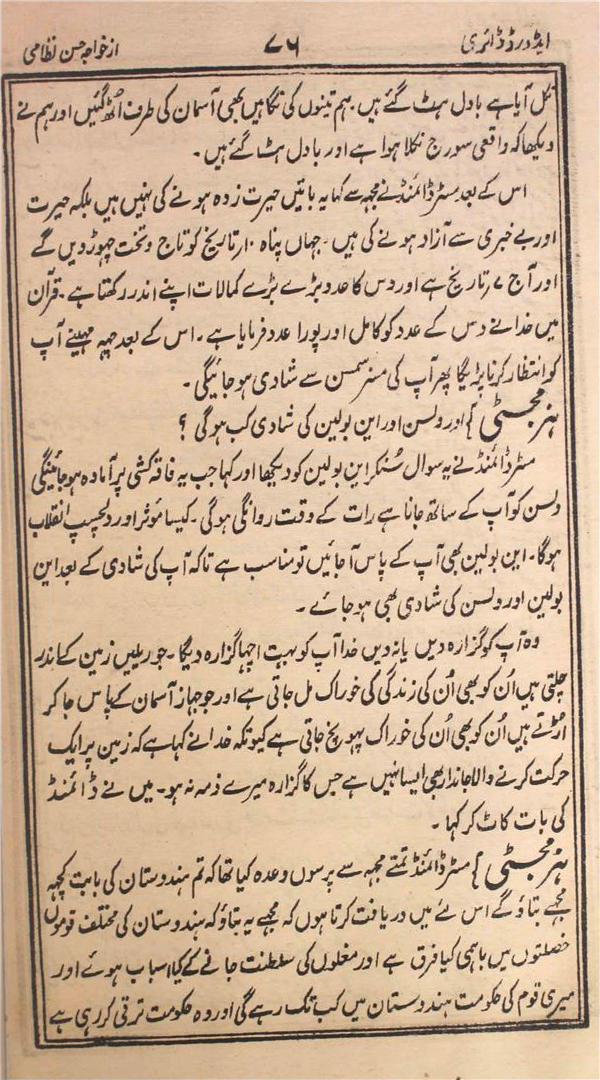 ایڈورڈ ڈائری ۷۶ از خواجہ حسن نظامی
نکل آیا ہے بادل ہٹ گئے ہیں۔ ہم تینوں کی نگاہیں بھی آسمان کی طرف اُٹھ گئیں اور ہم نے
دیکھا کہ واقعی سورج نکلا ہوا ہے اور بادل ہٹ گئے ہیں۔
اس کے بعد مسٹر ڈائمنڈ نے مجھہ سے کہا یہ باتیں حیرت زدہ ہونے کی نہیں ہیں بلکہ حیرت
اور بے خبری سے آزاد ہونے کی ہیں۔ جہاں پناہ ۱۰ر تاریخ کو تاج و تخت چھوڑ دیں گے
اور آج ۷ر تاریخ ہے اور دس کا عدد بڑے بڑے کمالات اپنے اندر رکھتا ہے۔ قرآن
میں خدا نے دس کے عدد کو کامل اور پورا عدد فرمایا ہے۔ اس کے بعد چھہ مہینے آپ
کو انتظار کرنا پڑیگا پھر آپ کی مسز سمسن سے شادی ہو جائیگی۔
ہز مجسٹی } اور ولسن اور این بولین کی شادی کب ہوگی ؟
مسٹر ڈائمنڈ نے یہ سوال سُنکر این بولین کو دیکھا اور کہا جب یہ فاقہ کشی پر آمادہ ہو جائینگی
ولسن کو آپ کے ساتھ جانا ہے رات کے وقت روانگی ہوگی۔ کیسا موثر اور دلچسپ انقلاب
ہوگا۔ این بولین بھی آپ کے پاس آ جائیں تو مناسب ہے تاکہ آپ کی شادی کے بعد این
بولین اور ولسن کی شادی بھی ہو جائے۔
وہ آپ کو گزارہ دیں یا نہ دیں خدا آپ کو بہت اچھا گزارہ دیگا۔ جو ریلیں زمین کے اندر
چلتی ہیں اُن کو بھی اُن کی زندگی کی خوراک مل جاتی ہے اور جو جہاز آسمان کے پاس جا کر
اڑتے ہیں اُن کو بھی اُن کی خوراک پہونچ جاتی ہے کیونکہ خدا نے کہا ہے کہ زمین پر ایک
حرکت کرنے والا جاندار بھی ایسا نہیں ہے جس کا گزارہ میرے ذمہ نہ ہو۔ میں نے ڈائمنڈ
کی بات کاٹ کر کہا۔
ہز مجسٹی } مسٹر ڈائمنڈ تمنے مجھہ سے پرسوں وعدہ کیا تھا کہ تم ہندوستان کی بابت کچھہ
مجھے بتاؤ گے اس لئے میں دریافت کرتا ہوں کہ مجھے یہ بتاؤ کہ ہندوستان کی مختلف قوموں
خصلتوں میں باہمی کیا فرق ہے اور مغلوں کی سلطنت جانے کے کیا اسباب ہوئے اور
میری قوم کی حکومت ہندوستان میں کب تک رہے گی اور وہ حکومت ترقی کر رہی ہے